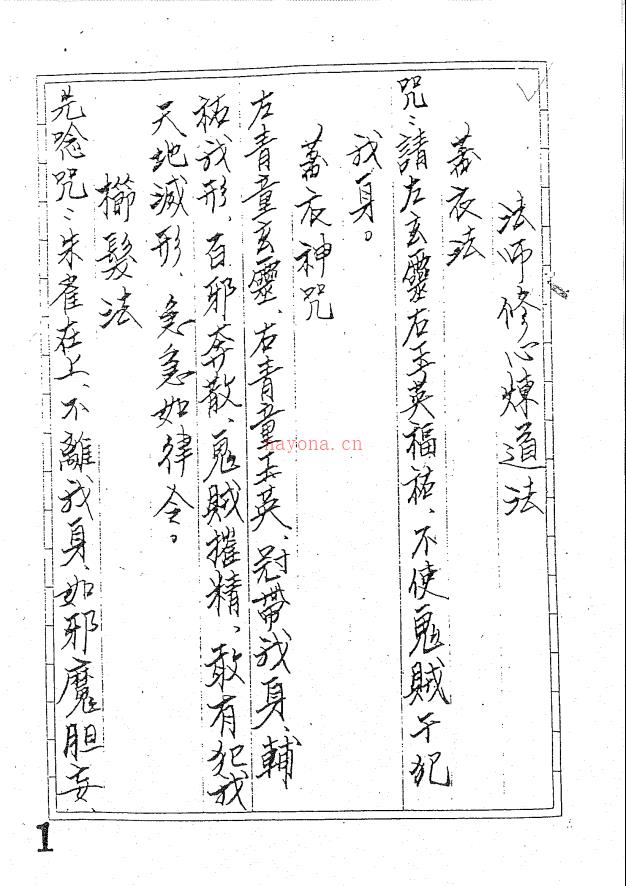 法师修心煉道法
著衣法
咒:請左玄靈右玉英福祐、不使鬼賊干犯
我身。
著衣神咒
左青童玄靈、右青童玉英、冠帶我身、輔
祐我形、百邪奔散、鬼賊摧精、敢有犯我
天地滅形、急急如律令。
櫛髮法
先唸咒:朱雀在上、不離我身、如邪魔胆妄、
nayona.cn
1